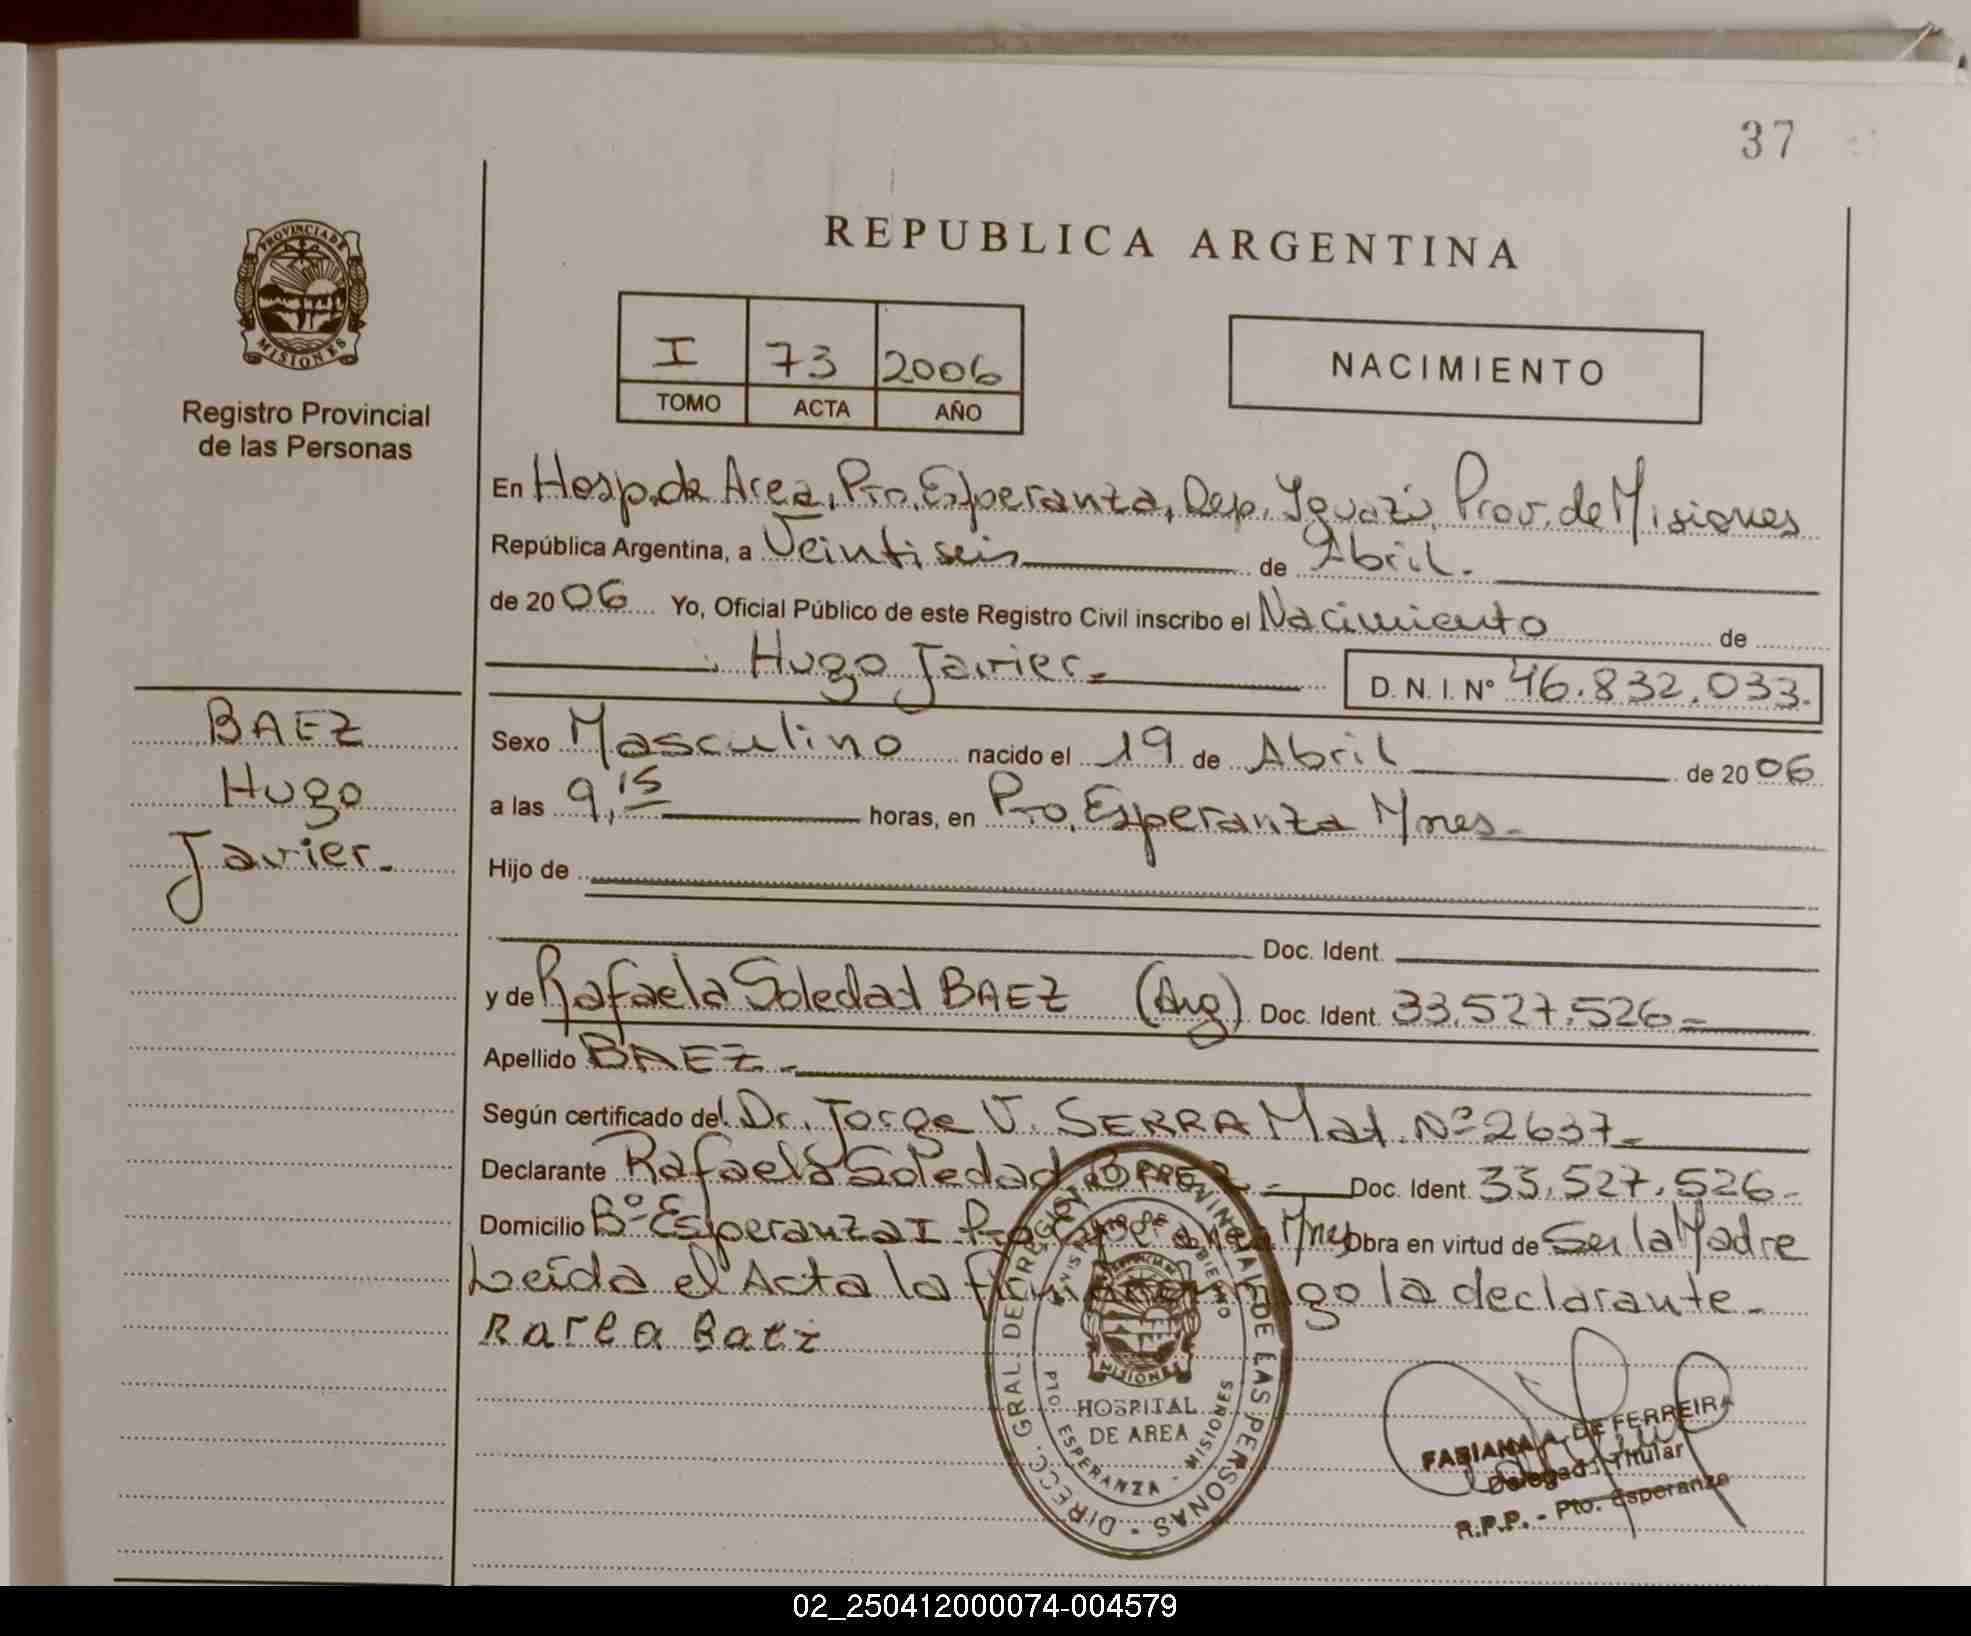 37
PROVINCIA DE
MISIONES
Registro Provincial
de las Personas
REPUBLICA ARGENTINA
I 73 2006
TOMO ACTA AÑO
NACIMIENTO
En Hosp. de Area, Pto. Esperanza, Dep. Iguazú, Prov. de Misiones
República Argentina, a Veintiseis de Abril.
de 2006 Yo, Oficial Público de este Registro Civil inscribo el Nacimiento de
Hugo Javier.
D. N. I. Nº 46.832.033.
BAEZ
Hugo
Javier.
Sexo Masculino nacido el 19 de Abril de 2006
a las 9,15 horas, en Pto. Esperanza Mnes.
Hijo de
Doc. Ident.
y de Rafaela Soledad BAEZ (Arg) Doc. Ident. 33.527.526
Apellido BAEZ
Según certificado del Dr. Jorge V. SERRA Mat. Nº 2637
Declarante Rafaela Soledad BAEZ Doc. Ident. 33.527.526
Domicilio Bº Esperanza I Pto. Esperanza Mnes Obra en virtud de Ser la Madre
Leída el Acta la firma conmigo la declarante
Baez
DIRECC. GRAL. DE REGISTRO PROVINCIAL DE LAS PERSONAS
MISIONES
HOSPITAL
DE AREA
PTO ESPERANZA - MISIONES
FABIANA A. DE FERREIRA
Delegada Titular
R.P.P. - Pto. Esperanza
02_250412000074-004579